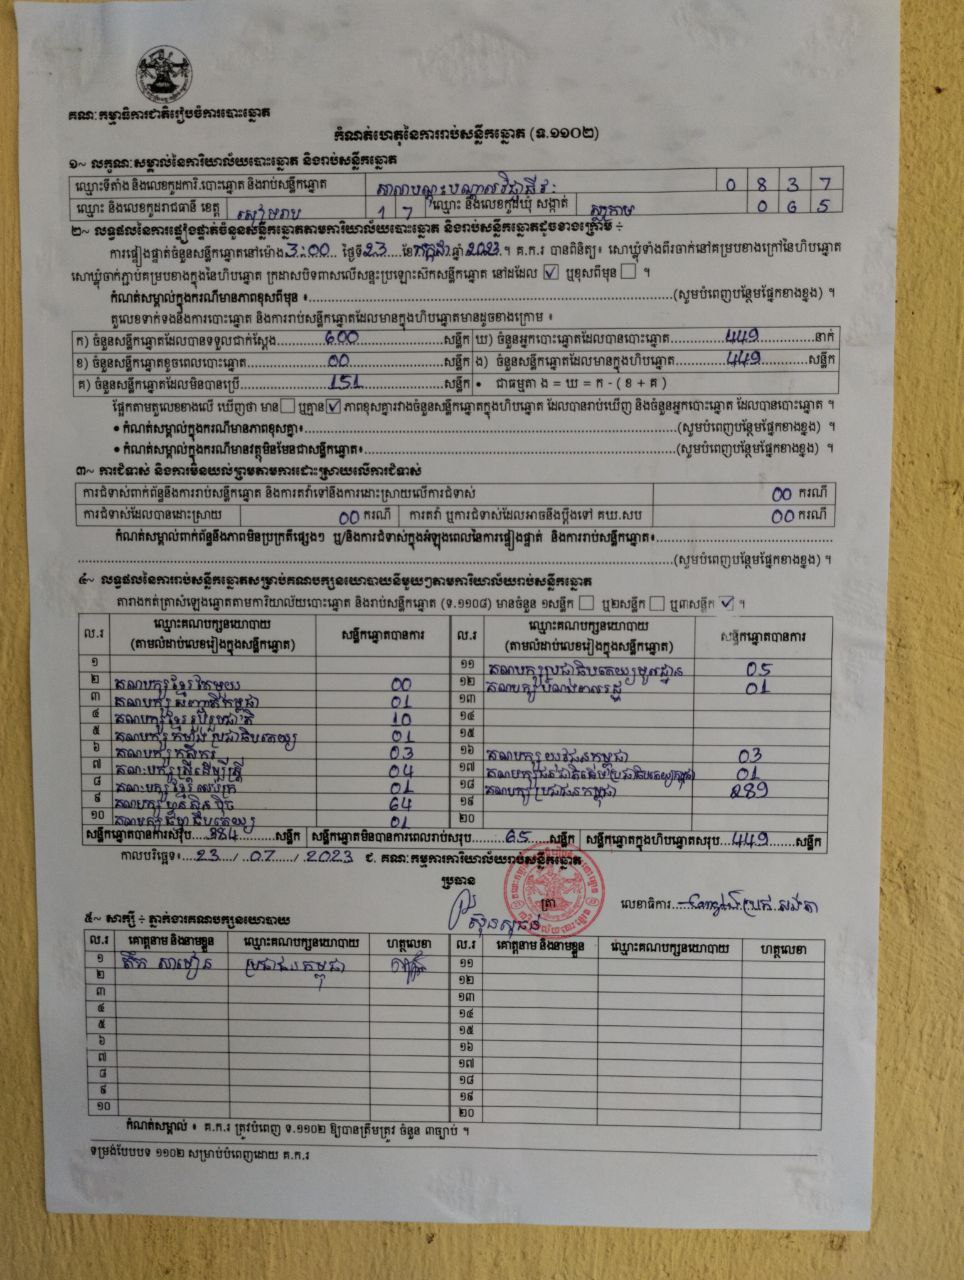 គណៈកម្មាធិការជាតិរៀបចំការបោះឆ្នោត
កំណត់ហេតុនៃការរាប់សន្លឹកឆ្នោត (ទ.១១០២)
១~ លក្ខណៈសម្គាល់នៃការិយាល័យបោះឆ្នោត និងរាប់សន្លឹកឆ្នោត
ឈ្មោះទីតាំង និងលេខកូដការិ.បោះឆ្នោត និងរាប់សន្លឹកឆ្នោត 0 8 3 7
ឈ្មោះ និងលេខកូដរាជធានី ខេត្ត សៀមរាប 1 7 ឈ្មោះ និងលេខកូដឃុំ សង្កាត់ ស្លក្រាម 0 6 5
២~ លទ្ធផលនៃការផ្ទៀងផ្ទាត់ចំនួនសន្លឹកឆ្នោតតាមការិយាល័យបោះឆ្នោត និងរាប់សន្លឹកឆ្នោតដូចខាងក្រោម ÷
ការផ្ទៀងផ្ទាត់ចំនួនសន្លឹកឆ្នោតនៅម៉ោង 3:00 ថ្ងៃទី 23 ខែ កក្កដា ឆ្នាំ 2023 ។ គ.ក.រ បានពិនិត្យ៖ សោឃ្លុំទាំងពីរចាក់នៅគម្របខាងក្រៅនៃហិបឆ្នោត
សោឃ្លុំចាក់ភ្ជាប់គម្របខាងក្នុងនៃហិបឆ្នោត ក្រដាសបិទពាសលើសន្ទះប្រឡោះសឹកសន្លឹកឆ្នោត នៅដដែល ☑ ឬខុសពីមុន ☐ ។
កំណត់សម្គាល់ក្នុងករណីមានភាពខុសពីមុន ៖ (សូមបំពេញបន្ថែមផ្នែកខាងខ្នង) ។
តួលេខទាក់ទងនឹងការបោះឆ្នោត និងការរាប់សន្លឹកឆ្នោតដែលមានក្នុងហិបឆ្នោតមានដូចខាងក្រោម ៖
ក) ចំនួនសន្លឹកឆ្នោតដែលបានទទួលជាក់ស្តែង 600 សន្លឹក ឃ) ចំនួនអ្នកបោះឆ្នោតដែលបានបោះឆ្នោត 449 នាក់
ខ) ចំនួនសន្លឹកឆ្នោតខូចពេលបោះឆ្នោត 00 សន្លឹក ង) ចំនួនសន្លឹកឆ្នោតដែលមានក្នុងហិបឆ្នោត 449 សន្លឹក
គ) ចំនួនសន្លឹកឆ្នោតដែលមិនបានប្រើ 151 សន្លឹក • ជាធម្មតា ង = ឃ = ក - ( ខ + គ )
ផ្អែកតាមតួលេខខាងលើ ឃើញថា មាន ☐ ឬគ្មាន ☑ ភាពខុសគ្នារវាងចំនួនសន្លឹកឆ្នោតក្នុងហិបឆ្នោត ដែលបានរាប់ឃើញ និងចំនួនអ្នកបោះឆ្នោត ដែលបានបោះឆ្នោត ។
• កំណត់សម្គាល់ក្នុងករណីមានភាពខុសគ្នា៖ (សូមបំពេញបន្ថែមផ្នែកខាងខ្នង) ។
• កំណត់សម្គាល់ក្នុងករណីមានវត្ថុមិនមែនជាសន្លឹកឆ្នោត៖ (សូមបំពេញបន្ថែមផ្នែកខាងខ្នង) ។
៣~ ការជំទាស់ និងការមិនយល់ព្រមតាមការដោះស្រាយលើការជំទាស់
ការជំទាស់ពាក់ព័ន្ធនឹងការរាប់សន្លឹកឆ្នោត និងការតវ៉ាទៅនឹងការដោះស្រាយលើការជំទាស់ 00 ករណី
ការជំទាស់ដែលបានដោះស្រាយ 00 ករណី ការតវ៉ា ឬការជំទាស់ដែលអាចនឹងប្តឹងទៅ គឃ.សប 00 ករណី
កំណត់សម្គាល់ពាក់ព័ន្ធនឹងភាពមិនប្រក្រតីផ្សេងៗ ឬ/និងការជំទាស់ក្នុងអំឡុងពេលនៃការផ្ទៀងផ្ទាត់ និងការរាប់សន្លឹកឆ្នោត៖
(សូមបំពេញបន្ថែមផ្នែកខាងខ្នង) ។
៤~ លទ្ធផលនៃការរាប់សន្លឹកឆ្នោតសម្រាប់គណបក្សនយោបាយនីមួយៗតាមការិយាល័យរាប់សន្លឹកឆ្នោត
តារាងកត់ត្រាសំឡេងឆ្នោតតាមការិយាល័យបោះឆ្នោត និងរាប់សន្លឹកឆ្នោត (ទ.១១០៨) មានចំនួន ១សន្លឹក ☐ ឬ២សន្លឹក ☐ ឬ៣សន្លឹក ☑ ។
ល.រ ឈ្មោះគណបក្សនយោបាយ សន្លឹកឆ្នោតបានការ ល.រ ឈ្មោះគណបក្សនយោបាយ សន្លឹកឆ្នោតបានការ
(តាមលំដាប់លេខរៀងក្នុងសន្លឹកឆ្នោត) (តាមលំដាប់លេខរៀងក្នុងសន្លឹកឆ្នោត)
១ ១១ គណបក្សប្រជាធិបតេយ្យមូលដ្ឋាន 05
២ គណបក្សខ្មែរតែមួយ 00 ១២ គណបក្សបំណងពលរដ្ឋ 01
៣ គណបក្សសញ្ជាតិកម្ពុជា 01 ១៣
៤ គណបក្សខ្មែររួបរួមជាតិ 10 ១៤
៥ គណបក្សកម្លាំងប្រជាធិបតេយ្យ 01 ១៥
៦ គណបក្សកសិករ 03 ១៦ គណបក្សយុវជនកម្ពុជា 03
៧ គណៈបក្សស្ត្រីដើម្បីស្ត្រី 04 ១៧ គណបក្សជនជាតិដើមប្រជាធិបតេយ្យកម្ពុជា 01
៨ គណៈបក្សខ្មែរអភិរក្ស 01 ១៨ គណបក្សប្រជាជនកម្ពុជា 289
៩ គណបក្សហ្វ៊ុនស៊ិនប៉ិច 64 ១៩
១០ គណបក្សធម្មាធិបតេយ្យ 01 ២០
សន្លឹកឆ្នោតបានការសរុប 384 សន្លឹក សន្លឹកឆ្នោតមិនបានការពេលរាប់សរុប 65 សន្លឹក សន្លឹកឆ្នោតក្នុងហិបឆ្នោតសរុប 449 សន្លឹក
កាលបរិច្ឆេទ៖ 23 / 07 / 2023 ជ. គណៈកម្មការការិយាល័យរាប់សន្លឹកឆ្នោត
ប្រធាន
ត្រា លេខាធិការ
៥~ សាក្សី ÷ ភ្នាក់ងារគណបក្សនយោបាយ
ល.រ គោត្តនាម និងនាមខ្លួន ឈ្មោះគណបក្សនយោបាយ ហត្ថលេខា ល.រ គោត្តនាម និងនាមខ្លួន ឈ្មោះគណបក្សនយោបាយ ហត្ថលេខា
១ ប្រជាជនកម្ពុជា ១១
២ ១២
៣ ១៣
៤ ១៤
៥ ១៥
៦ ១៦
៧ ១៧
៨ ១៨
៩ ១៩
១០ ២០
កំណត់សម្គាល់ ៖ គ.ក.រ ត្រូវបំពេញ ទ.១១០២ ឱ្យបានត្រឹមត្រូវ ចំនួន ៣ច្បាប់ ។
ទម្រង់បែបបទ ១១០២ សម្រាប់បំពេញដោយ គ.ក.រ